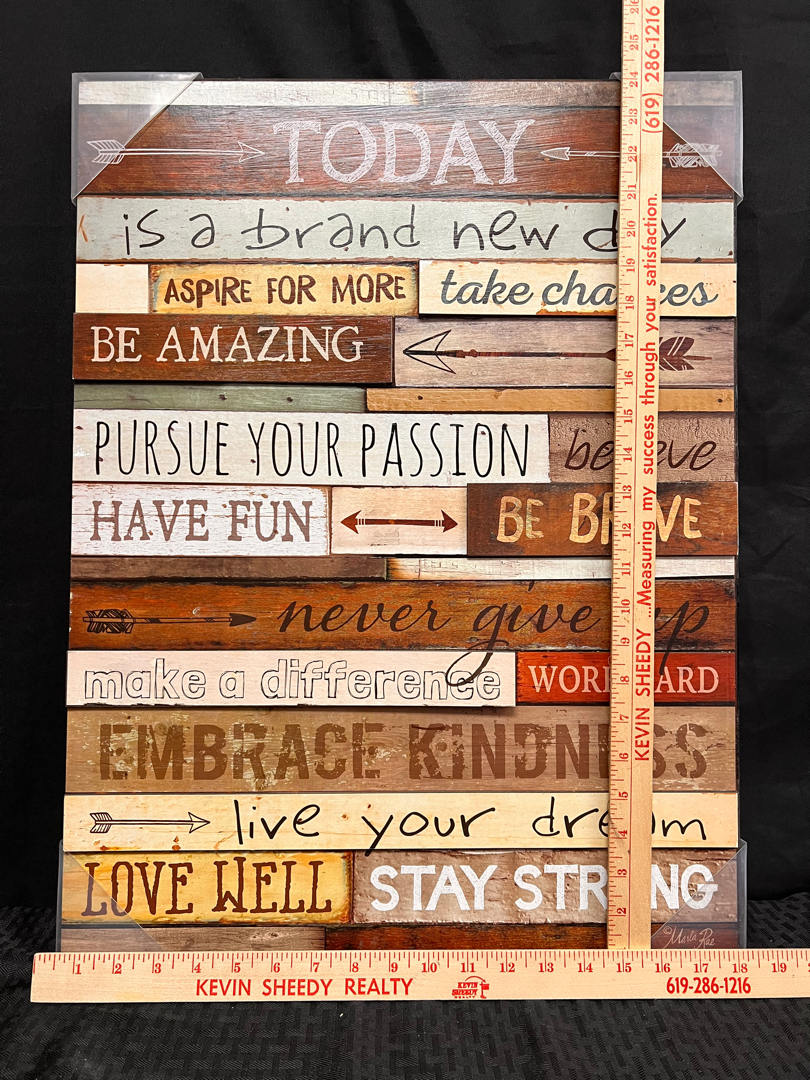 TODAY
is a brand new day
ASPIRE FOR MORE take chances
BE AMAZING
PURSUE YOUR PASSION believe
HAVE FUN BE BRAVE
never give up
make a difference WORK HARD
EMBRACE KINDNESS
live your dream
LOVE WELL STAY STRONG
©Marla Rae
KEVIN SHEEDY ...Measuring my success through your satisfaction. (619) 286-1216
2 3 4 5 6 7 8 9 10 11 12 13 14 15 16 17 18 19 20 21 22 23 24 25 26
1 2 3 4 5 6 7 8 9 10 11 12 13 14 15 16 17 18 19
KEVIN SHEEDY REALTY KEVIN SHEEDY REALTY 619-286-1216